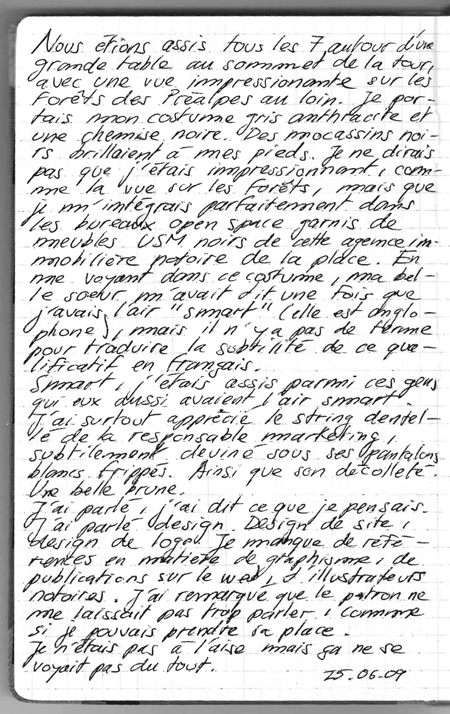 Nous étions assis tous les 7, autour d'une
grande table au sommet de la tour,
avec une vue impressionante sur les
Forêts des Préalpes au loin. Je por-
tais mon costume gris anthracite et
une chemise noire. Des mocassins noi-
rs brillaient à mes pieds. Je ne dirais
pas que j'étais impressionnant, com-
me la vue sur les Forêts, mais que
je m'intégrais parfaitement dans
les bureaux open space garnis de
meubles USM noirs de cette agence im-
mobilière notoire de la place. En
me voyant dans ce costume, ma bel-
le soeur m'avait dit une fois que
j'avais l'air "smart" (elle est anglo-
phone), mais il n'y a pas de terme
pour traduire la subtilité de ce qua-
lificatif en français.
Smart, j'étais assis parmi ces gens
qui eux aussi avaient l'air smart.
J'ai surtout apprécié le string dentel-
le de la responsable marketing,
subtilement deviné sous ses pantalons
blancs frippés. Ainsi que son décolleté.
Une belle brune.
J'ai parlé, j'ai dit ce que je pensais.
J'ai parlé design. Design de site,
design de logo. Je manque de réfé-
rences en matière de graphisme, de
publications sur le web, d'illustrateurs
notoires. J'ai remarqué que le patron ne
me laissait pas trop parler, comme
si je pouvais prendre sa place.
Je n'étais pas à l'aise mais ça ne se
voyait pas du tout.
25.06.09